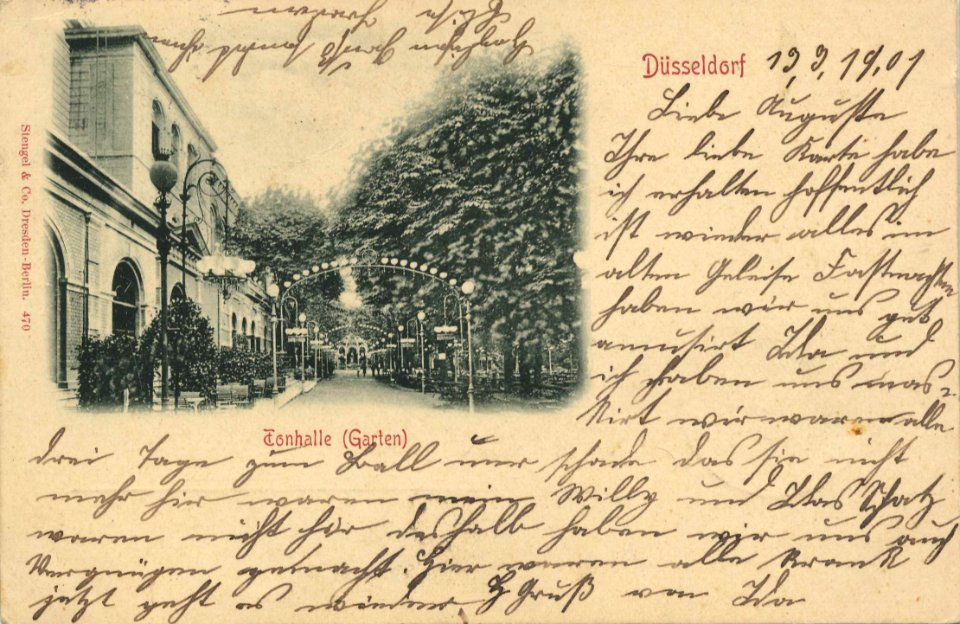 Düsseldorf 13.3.1901
Liebe Auguste
Ihre liebe Karte habe
ich erhalten hoffentlich
ist wieder alles im
alten Geleise Fastnachten
haben wir uns gut
amusirt Ida und
ich haben uns mas-
kirt wir waren alle
drei Tage zum Ball nur schade das sie nicht
mehr hier waren mein Willy und Idas Schatz
waren nicht hir deshalb haben wir uns auch
Vergnügen gemacht. Hier waren alle Krank
jetzt geht es wieder H Gruß von Ida
Tonhalle (Garten)
Stengel & Co. Dresden-Berlin. 470